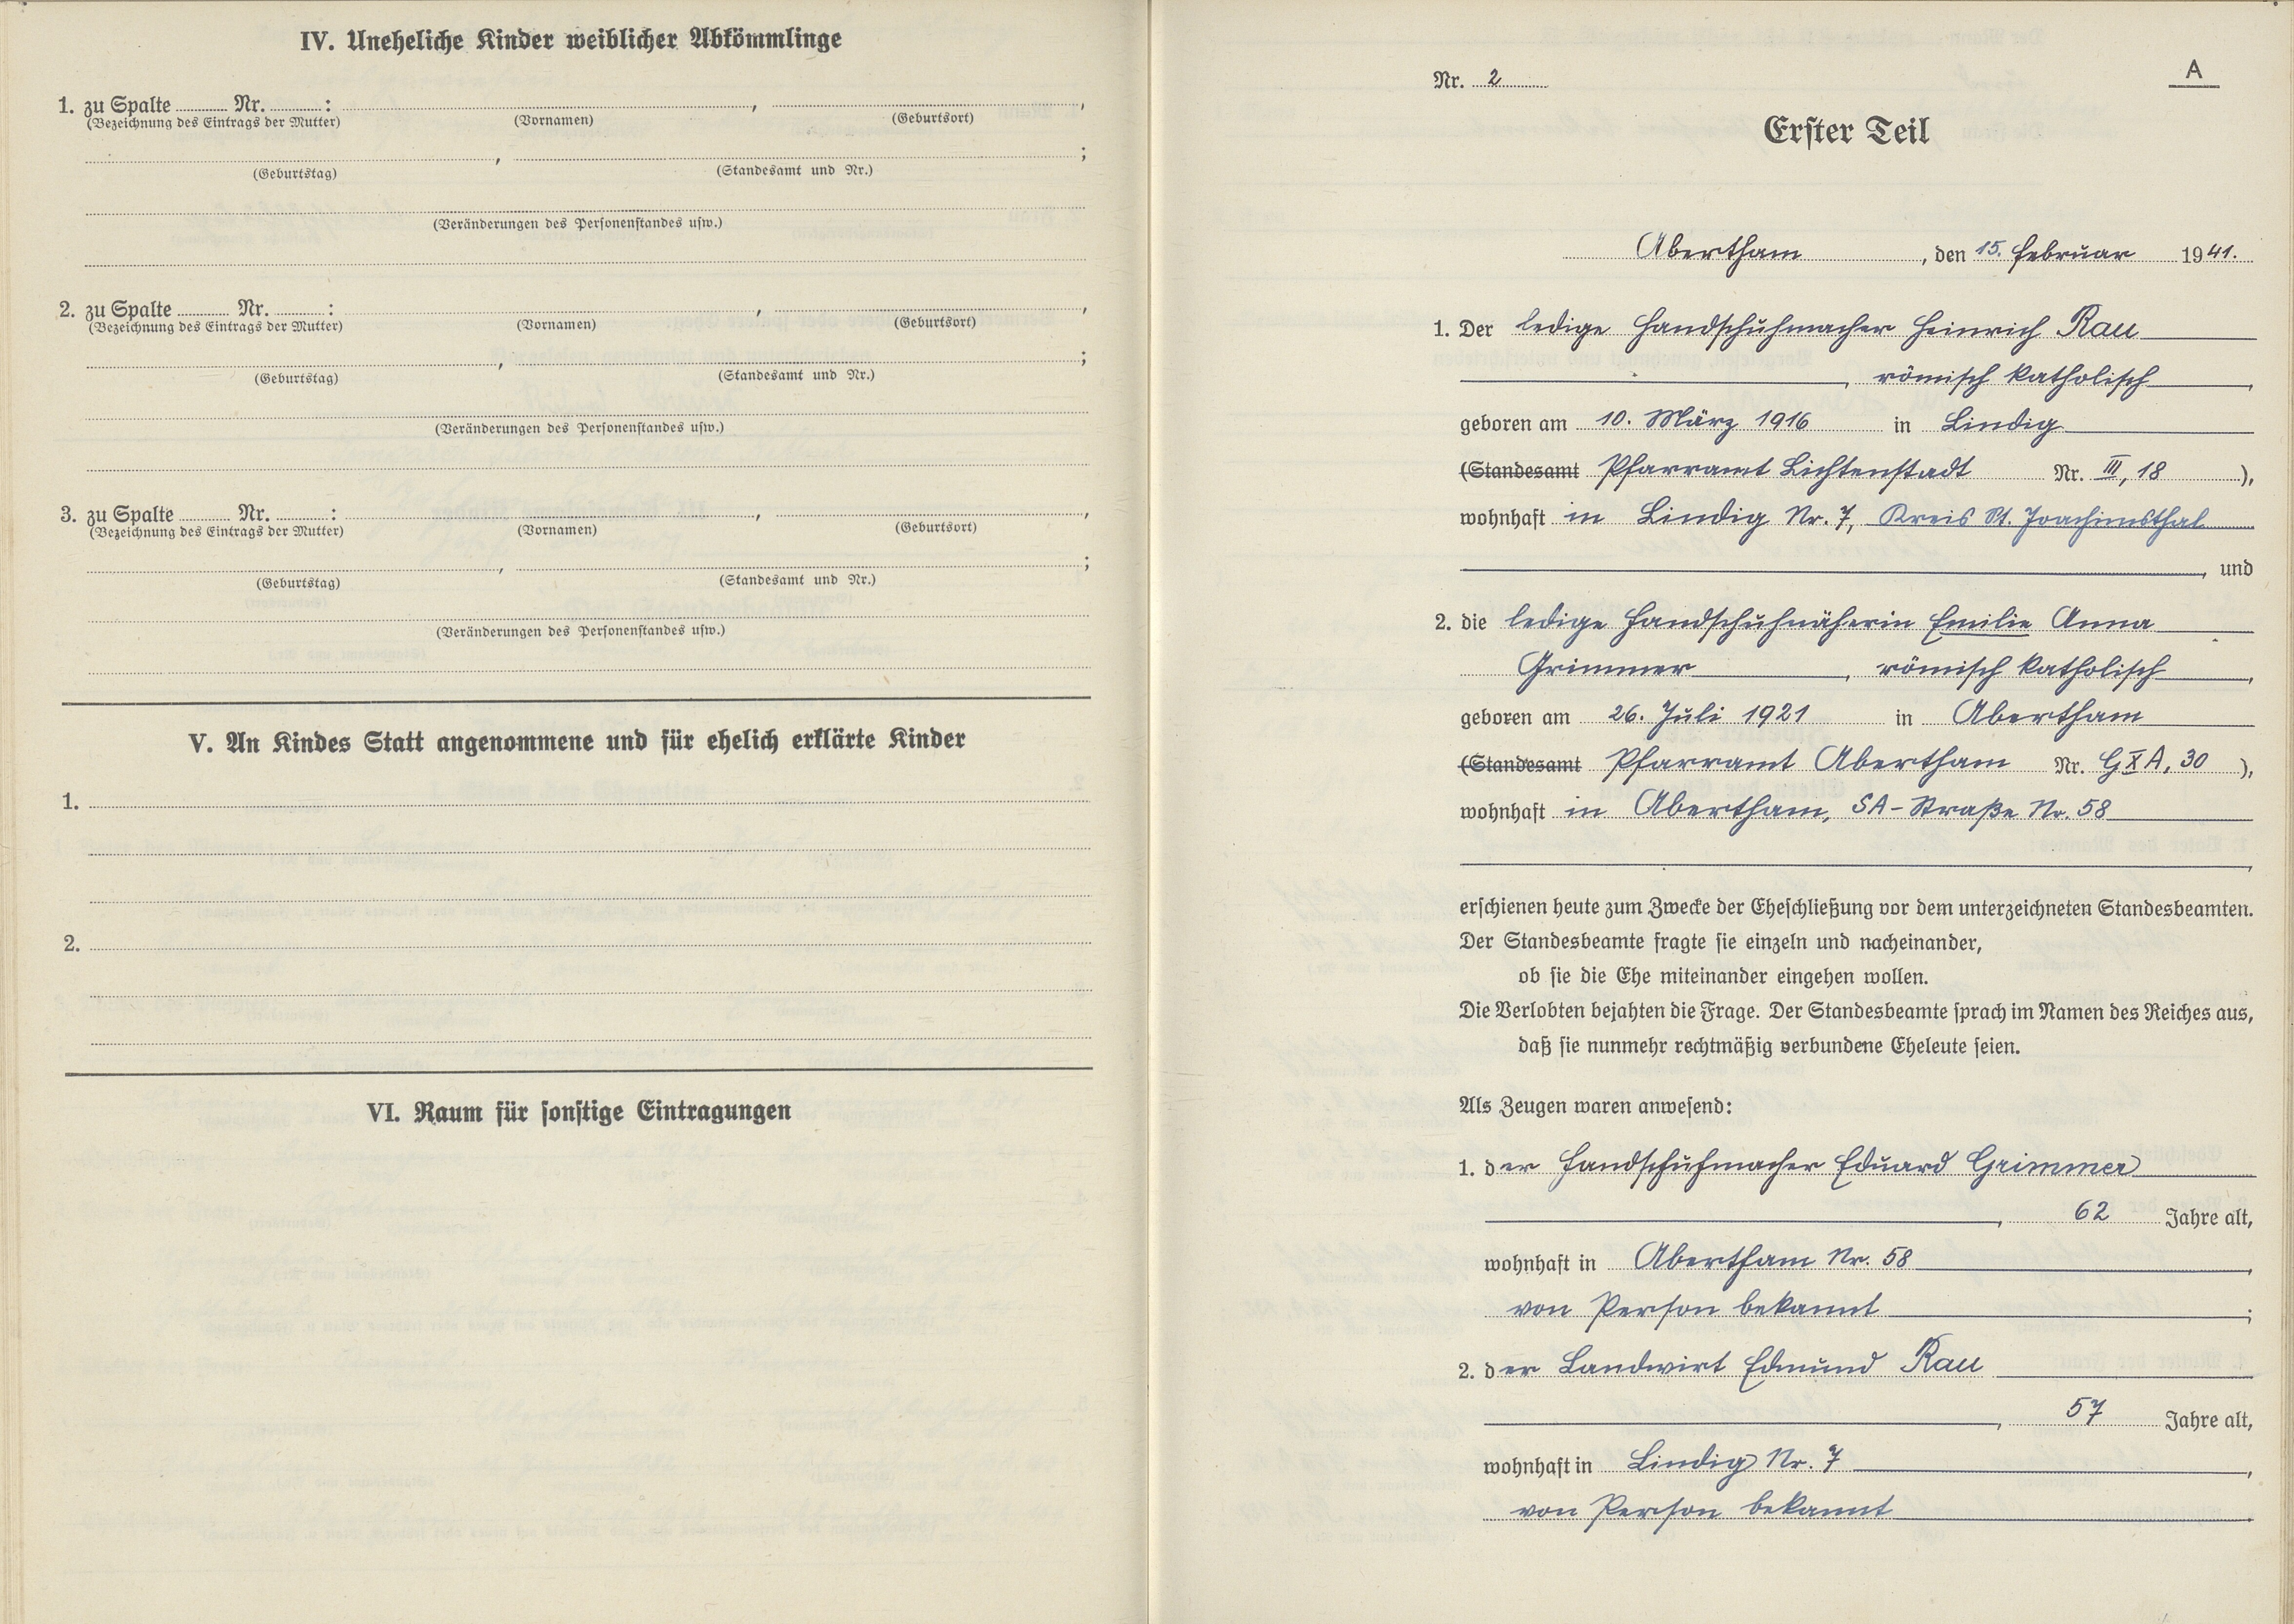 IV. Uneheliche Kinder weiblicher Abkömmlinge
1. zu Spalte Nr. : , ,
(Bezeichnung des Eintrags der Mutter) (Vornamen) (Geburtsort)
, ;
(Geburtstag) (Standesamt und Nr.)
(Veränderungen des Personenstandes usw.)
2. zu Spalte Nr. : , ,
(Bezeichnung des Eintrags der Mutter) (Vornamen) (Geburtsort)
, ;
(Geburtstag) (Standesamt und Nr.)
(Veränderungen des Personenstandes usw.)
3. zu Spalte Nr. : , ,
(Bezeichnung des Eintrags der Mutter) (Vornamen) (Geburtsort)
, ;
(Geburtstag) (Standesamt und Nr.)
(Veränderungen des Personenstandes usw.)
V. An Kindes Statt angenommene und für ehelich erklärte Kinder
1.
2.
VI. Raum für sonstige Eintragungen
A
Nr. 2
Erster Teil
Abertham, den 15. Februar 1941.
1. Der ledige Handschuhmacher Heinrich Rau
, römisch katholisch,
geboren am 10. März 1916 in Lindig
(Standesamt Pfarramt Lichtenstadt Nr. III, 18 ),
wohnhaft in Lindig Nr. 7, Kreis St. Joachimsthal
, und
2. die ledige Handschuhnäherin Emilie Anna
Grimmer, römisch katholisch,
geboren am 26. Juli 1921 in Abertham
(Standesamt Pfarramt Abertham Nr. G X A, 30 ),
wohnhaft in Abertham, SA-Straße Nr. 58
,
erschienen heute zum Zwecke der Eheschließung vor dem unterzeichneten Standesbeamten.
Der Standesbeamte fragte sie einzeln und nacheinander,
ob sie die Ehe miteinander eingehen wollen.
Die Verlobten bejahten die Frage. Der Standesbeamte sprach im Namen des Reiches aus,
daß sie nunmehr rechtmäßig verbundene Eheleute seien.
Als Zeugen waren anwesend:
1. der Handschuhmacher Eduard Grimmer
, 62 Jahre alt,
wohnhaft in Abertham Nr. 58,
von Person bekannt;
2. der Landwirt Edmund Rau
, 57 Jahre alt,
wohnhaft in Lindig Nr. 7,
von Person bekannt.